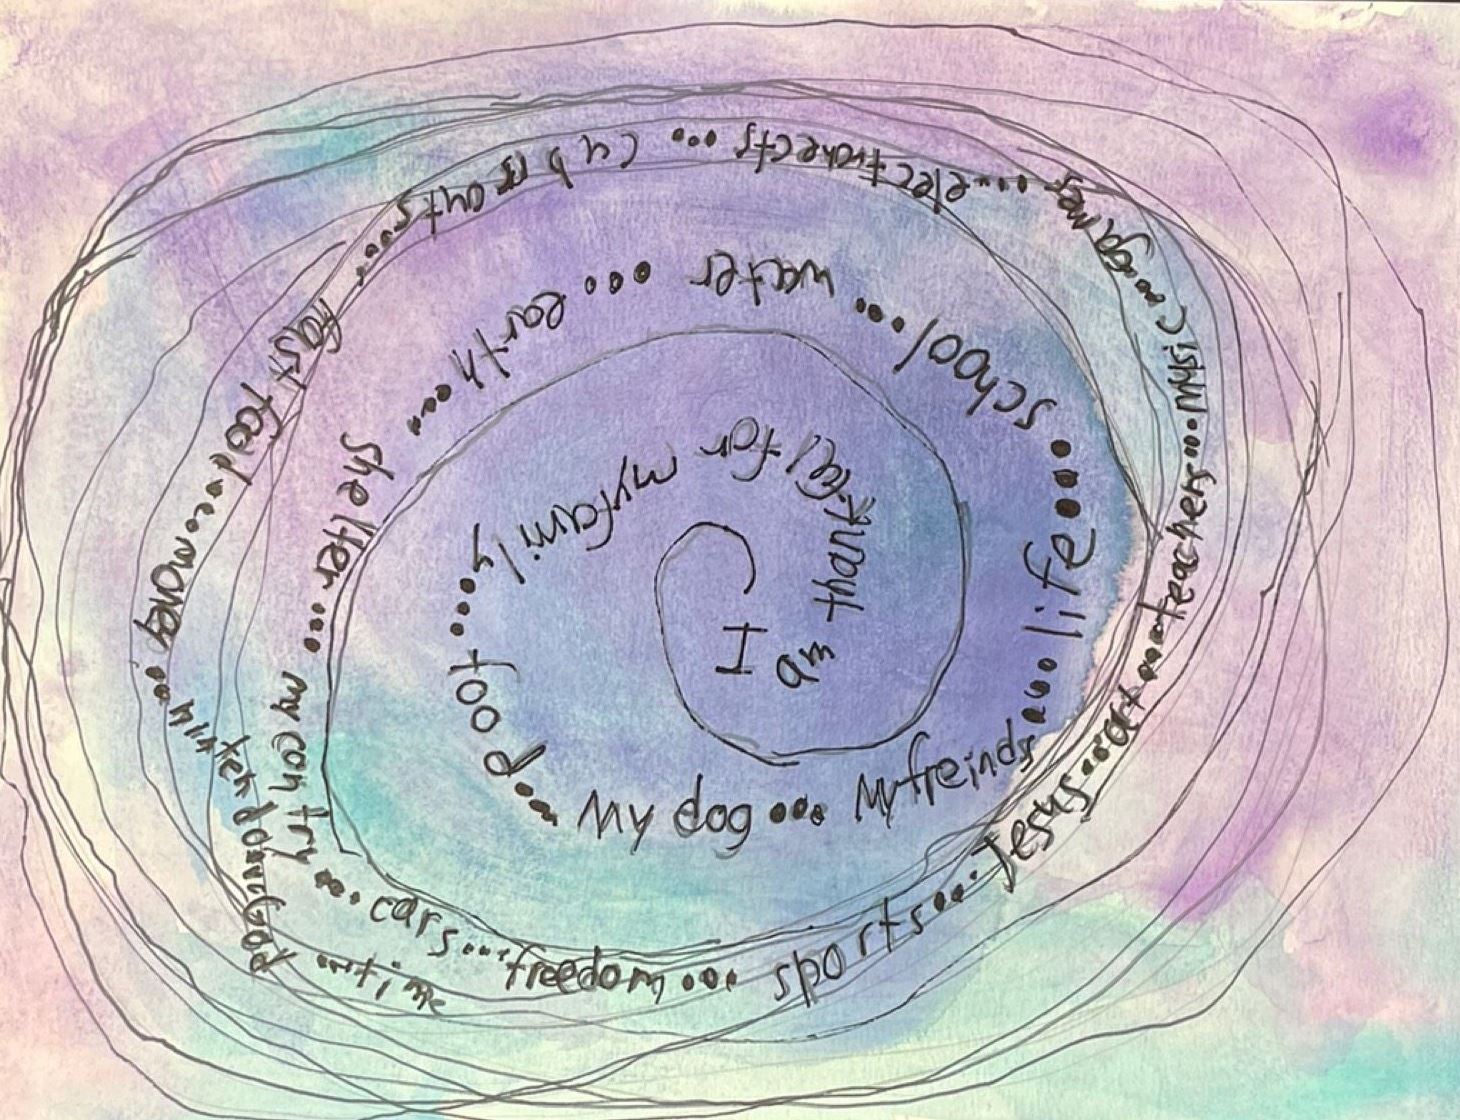 I am thankful for my family.... food... My dog... My freinds.... life... school.... water.... earth.... shelter.... my contry... cars... freedom... sports.... Jesus... art... teachers... Music... games... electronects... cub scouts.... fast food.... money... time